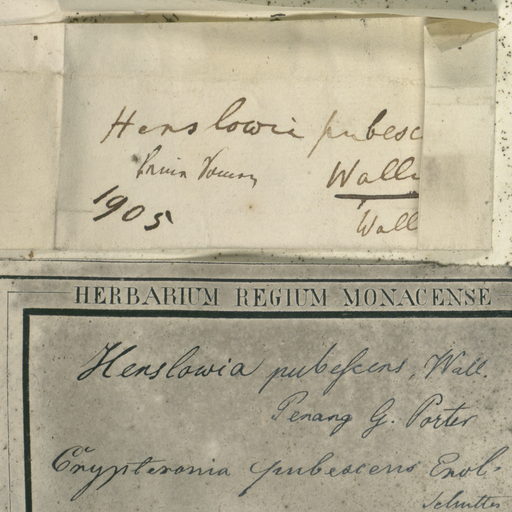 Henslowia pubesc
Walli
1905
Wall
HERBARIUM REGIUM MONACENSE
Henslowia pubescens, Wall.
Penang G. Porter
Crypteronia pubescens